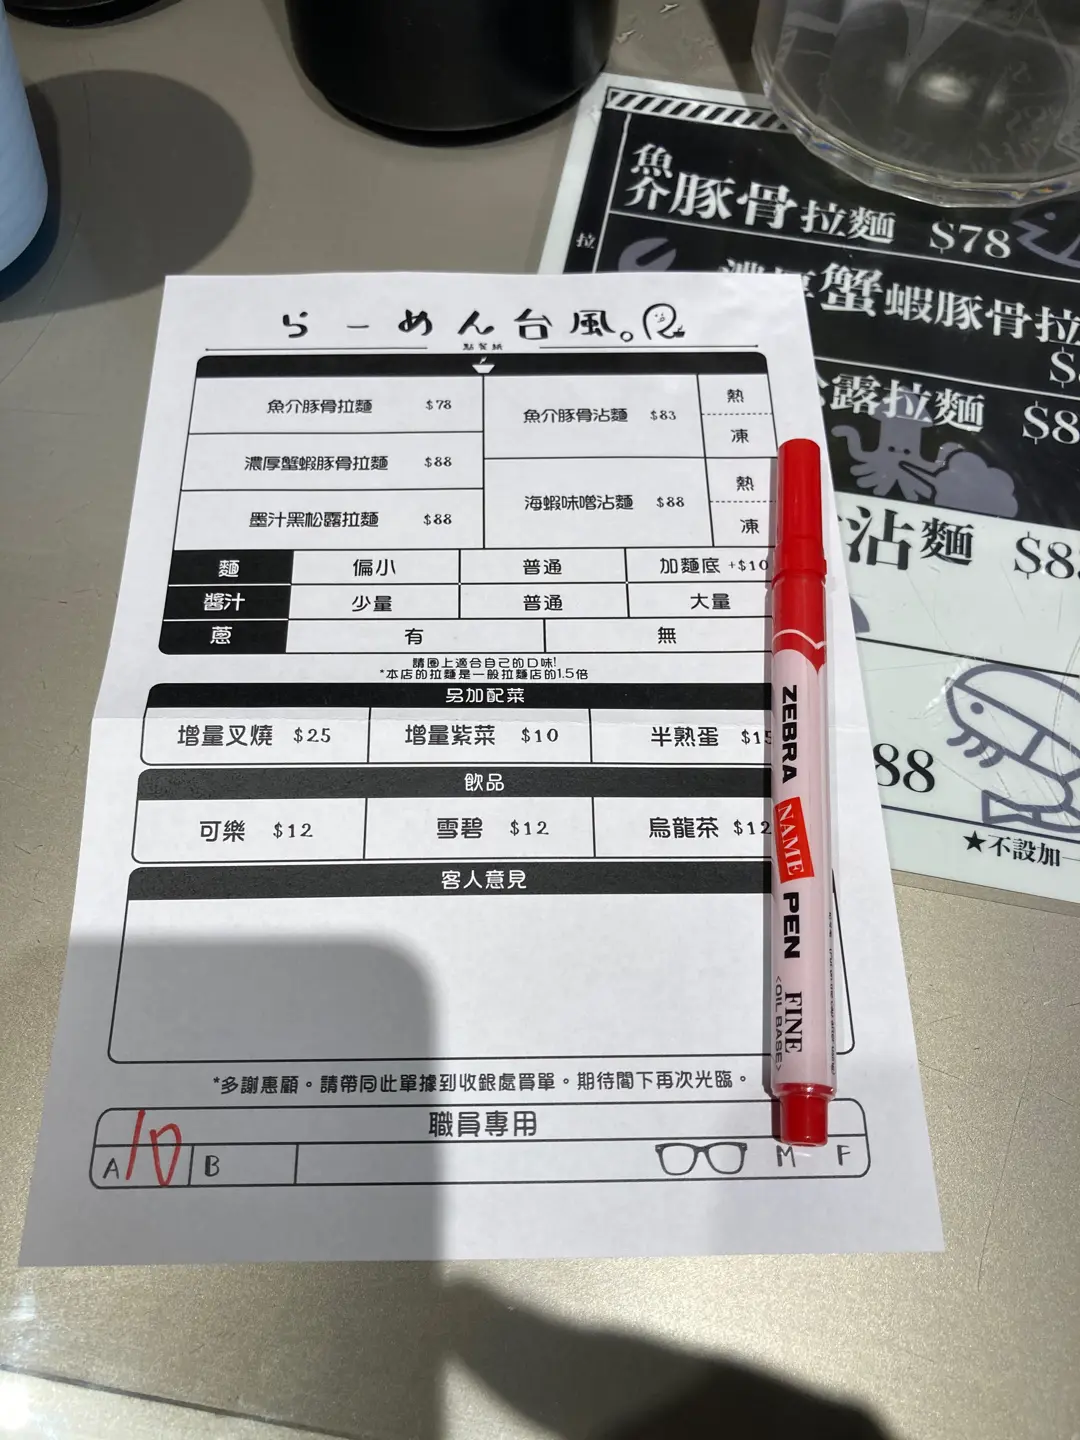 らーめん台風。
點餐紙
魚介豚骨拉麵 $78
濃厚蟹蝦豚骨拉麵 $88
墨汁黑松露拉麵 $88
魚介豚骨沾麵 $83 熱 凍
海蝦味噌沾麵 $88 熱 凍
麵 偏小 普通 加麵底 +$10
醬汁 少量 普通 大量
蔥 有 無
請圈上適合自己的口味!
*本店的拉麵是一般拉麵店的1.5倍
另加配菜
增量叉燒 $25 增量紫菜 $10 半熟蛋 $15
飲品
可樂 $12 雪碧 $12 烏龍茶 $12
客人意見
*多謝惠顧。請帶同此單據到收銀處買單。期待閣下再次光臨。
職員專用
A 10 B M F
ZEBRA NAME PEN FINE
<OIL BASE>
拉
魚介豚骨拉麵 $78
濃厚蟹蝦豚骨拉
露拉麵 $8
沾麵 $8
88
★不設加一